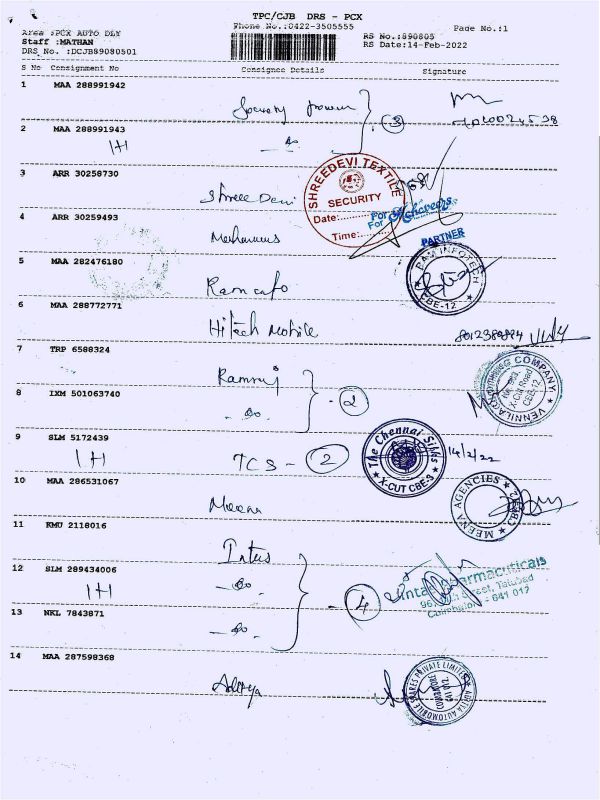 TPC/CJB DRS - PCX
Phone No.:0422-3505555
Page No.:1
Area :PCX AUTO DLY
Staff :MATHAN
DRS No. :DCJB89080501
RS No.:890805
RS Date:14-Feb-2022
S No Consignment No Consignee Details Signature
1 MAA 288991942
3
2 MAA 288991943
1+1
3 ARR 30258730
Shree Devi
SHREEDEVI TEXTILE
SECURITY
Date:
Time:
For
4 ARR 30259493
PARTNER
5 MAA 282476180
RAM INFOTECH
CBE-12
6 MAA 288772771
Hitech Mobile
7 TRP 6588324
Ramraj
VENNILA CLOTHING COMPANY
X-Cut Road
CBE-12
8 IXM 501063740
- Do - 2
9 SLM 5172439
1+1
TCS - 2
The Chennai Silks
X-CUT CBE-3
14/2/22
10 MAA 286531067
Meena
MEENA AGENCIES
11 KMU 2118016
Intas
12 SLM 289434006
1+1
- Do -
4
Intas Pharmaceuticals
Street, Tatabad
Coimbatore - 641 012
13 NKL 7843871
- Do -
14 MAA 287598368
Aditya
ADITYA AUTOMOBILE SPARES PRIVATE LIMITED
COIMBATORE
641 012